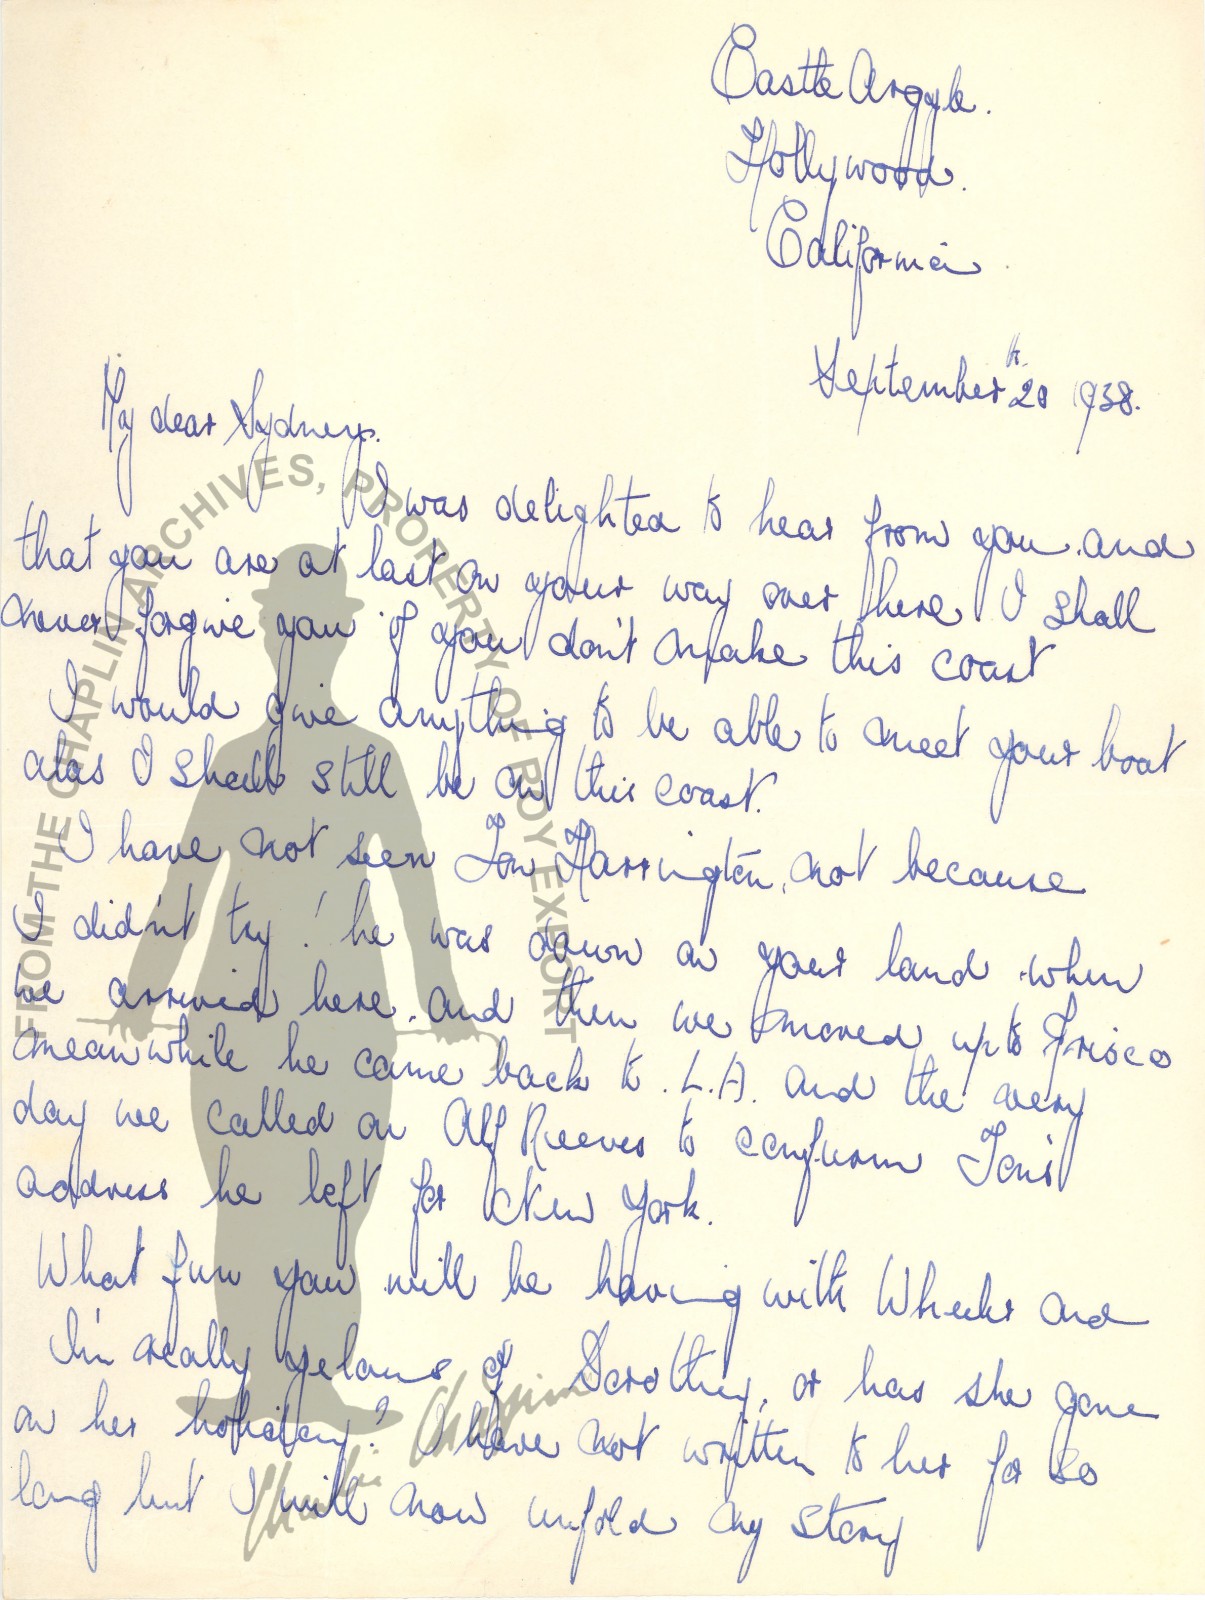 Castle Argyle.
Hollywood.
California.
September 20th 1938.
My dear Sydney.
I was delighted to hear from you. and
that you are at last on your way over here I shall
never forgive you if you don't make this coast
I would give anything to be able to meet your boat
alas I shall still be on this coast.
I have not seen Tom Harrington, not because
I didn't try! he was down on your land when
we arrived here. and then we moved up to Frisco
meanwhile he came back to. L.A. and the very
day we called on Alf Reeves to confirm Tom's
address he left for New York.
What fun you will be having with Wheeler and
I'm really jelous of Dorothy, or has she gone
on her holiday? I have not written to her for so
long but I will now unfold my story
FROM THE CHAPLIN ARCHIVES, PROPERTY OF ROY EXPORT
Charlie Chaplin